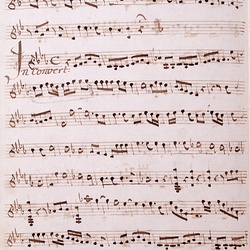 In convert: